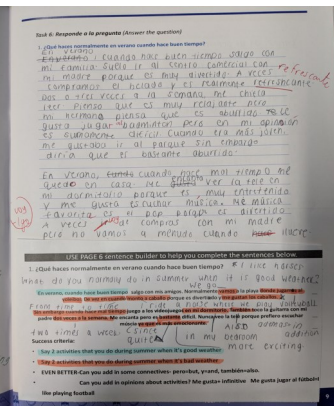 Task 6: Responde a la pregunta (Answer the question)
1. ¿Qué haces normalmente en verano cuando hace buen tiempo?
En verano
En verano, cuando hace buen tiempo salgo con
mi familia. Suelo ir al centro comercial con
mi madre porque es muy divertido. A veces
refrescante
compramos el helado y es realmente refrescante
Dos o tres veces a la semana, me chifla
leer. Pienso que es muy relajante pero
mi hermana piensa que es aburrido.
gusta jugar badminton pero en mi opinión
es sumamente difícil. Cuando era más joven,
me gustaba ir al parque sin embargo
diría que el bastante aburrido.
En verano, cuando hace mal tiempo me
quedo en casa. Me encanta ver la tele en
mi dormitorio porque es muy entretenido
y me gusta escuchar música. Me música
favorita es el pop porque es divertido.
voy
A veces voy compras con mi madre
pero no vamos a menudo cuando hace
USE PAGE 6 sentence builder to help you complete the sentences below.
1. ¿Qué haces normalmente en verano cuando hace buen tiempo?
What do you normally do in summer when it is good weather?
we go
En verano cuando hace buen tiempo salgo con mis amigos. Normalmente vamos a la playa donde jugamos al
From time to time I ride a horse
Sin embargo cuando hace mal tiempo juego a los videojuegos en mi dormitorio. También toco la guitarra con mi
padre dos veces a la semana. Me encanta pero es bastante difícil. Nunca veo la tele porque prefiero escuchar
música ya que es más emocionante.
two times a week
since
quite
in my bedroom
Also
in addition
more exciting
Success criteria:
• Say 2 activities that you do during summer when it's good weather
• Say 2 activities that you do during summer when it's bad weather
• EVEN BETTER-Can you add in some connectives- pero=but, y=and, también=also.
Can you add in opinions about activities? Me gusta= infinitive Me gusta jugar al fútbol=I
like playing football